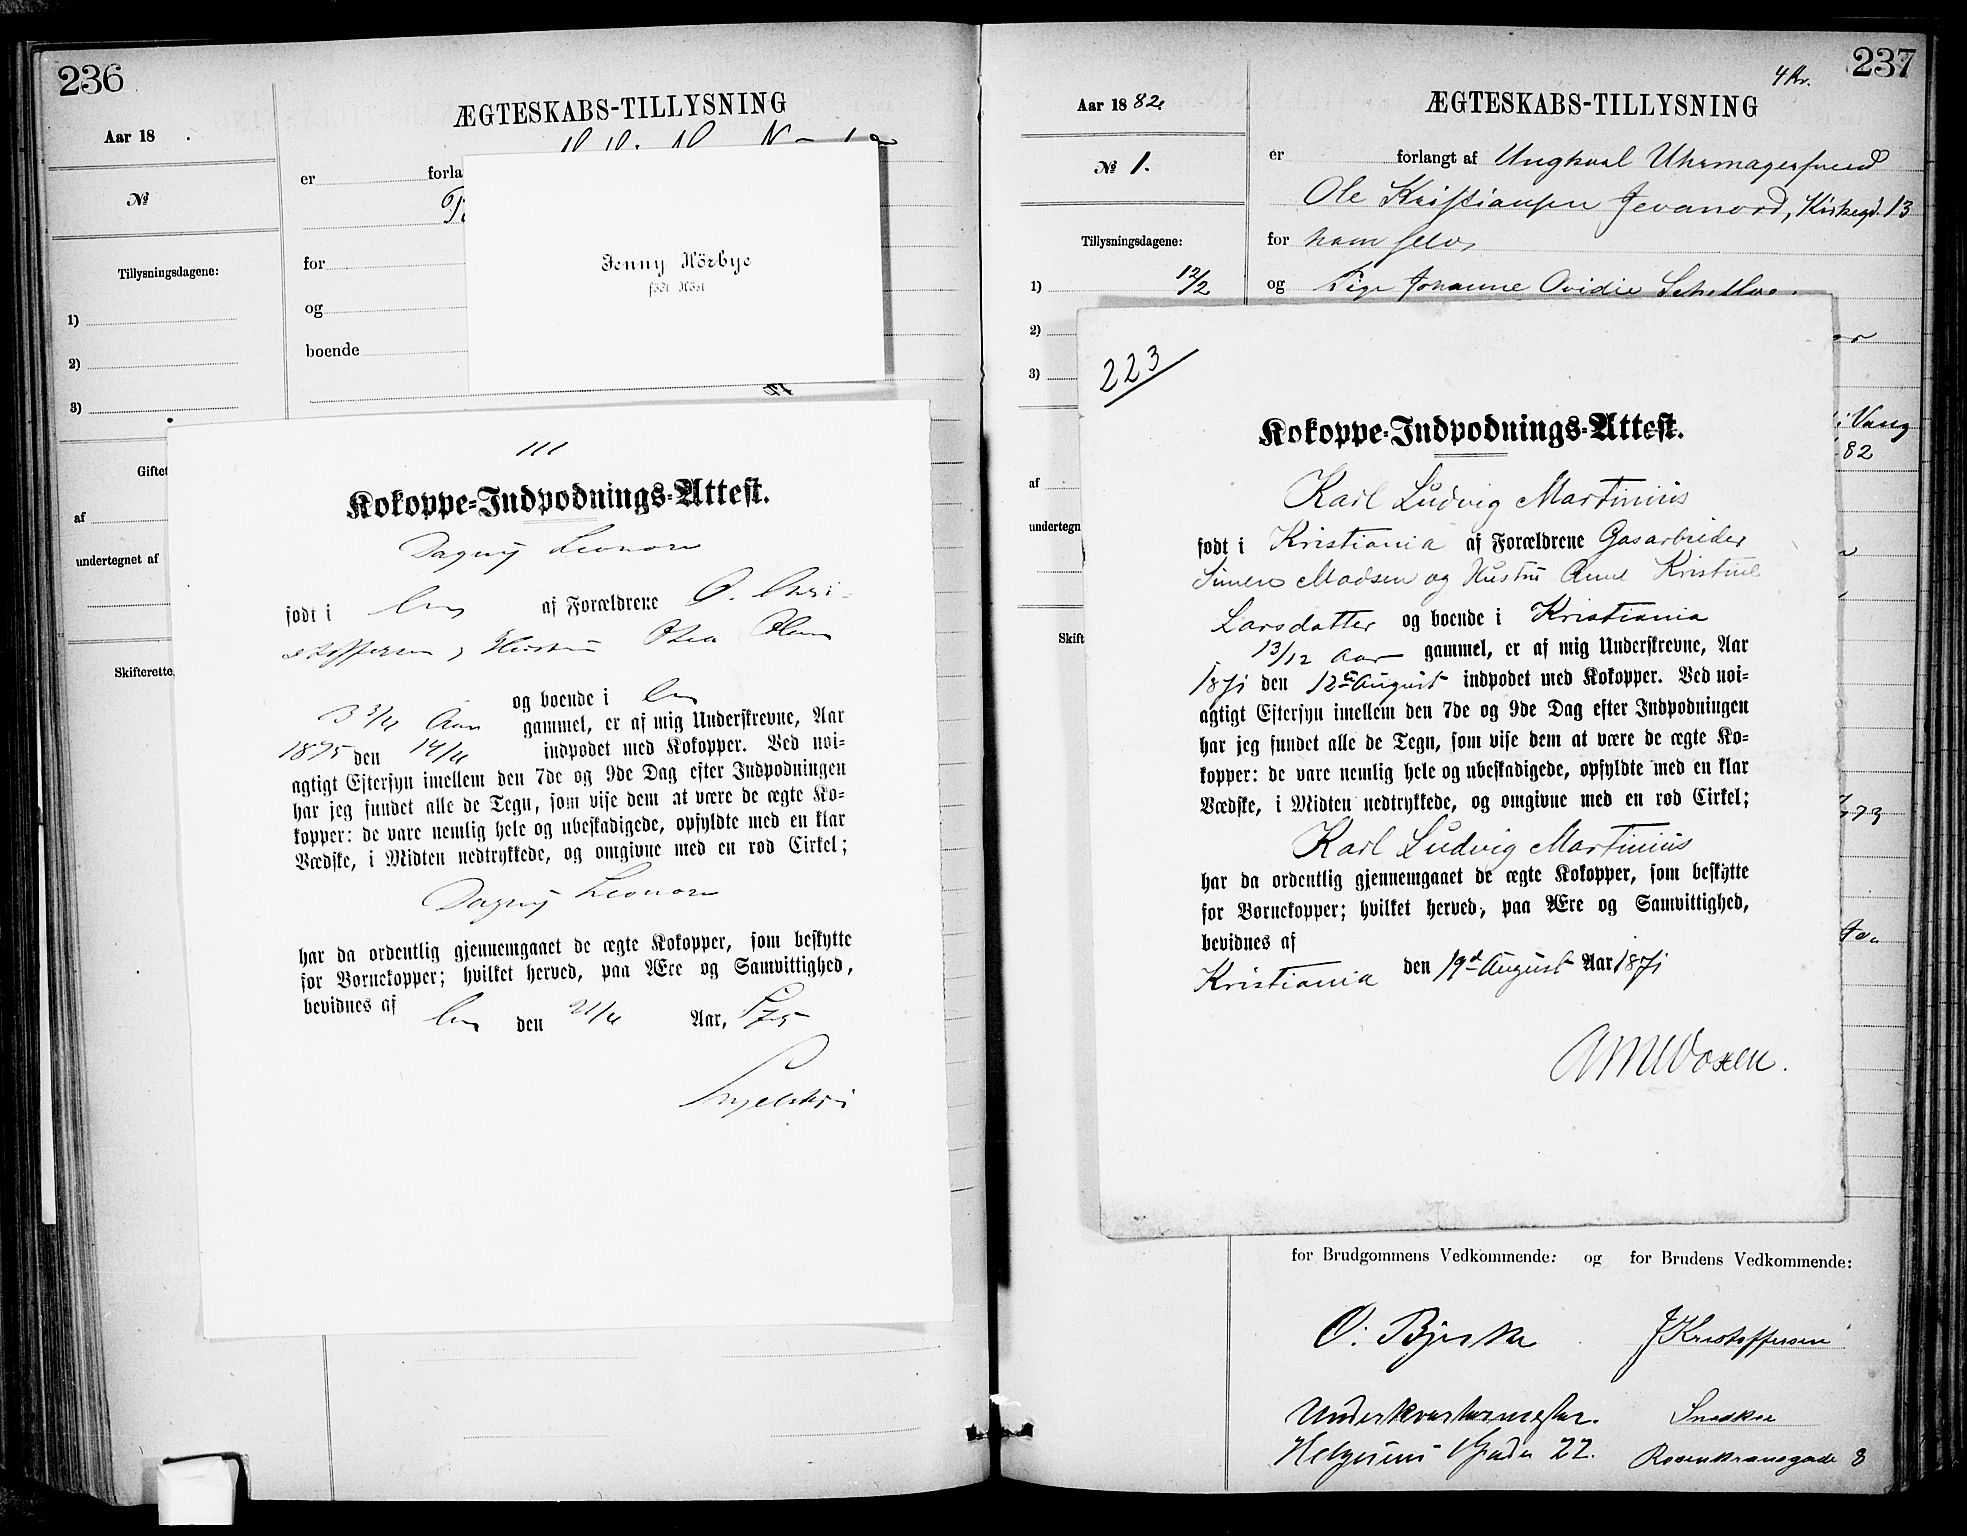 236
Aar 18 .
№
Tillysningsdagene:
1)
2)
3)
Giftet
af
undertegnet af
Skifterette
ÆGTESKABS-TILLYSNING
er forla
for
og
boende
Jenny Hörbye
født Höst
111
Kokoppe-Indpodnings-Attest.
Dagny Leonore
født i af Forældrene O. Chri-
stoffersen, Hustru Olsen
og boende i
3 3/4 Aar gammel, er af mig Underskrevne, Aar
1875 den 14/4 indpodet med Kokopper. Ved nøi-
agtigt Eftersyn imellem den 7de og 9de Dag efter Indpodningen
har jeg fundet alle de Tegn, som vise dem at være de ægte Ko-
kopper: de vare nemlig hele og ubeskadigede, opfyldte med en klar
Vædske, i Midten nedtrykkede, og omgivne med en rød Cirkel;
Dagny Leonore
har da ordentlig gjennemgaaet de ægte Kokopper, som beskytte
for Børnekopper; hvilket herved, paa Ære og Samvittighed,
bevidnes af
den 21/4 Aar, 75
237
4 Kr.
Aar 18 82.
№ 1.
Tillysningsdagene:
1) 12/2
2)
3)
af
undertegn
Skift
ÆGTESKABS-TILLYSNING
er forlangt af Ungkarl Uhrmagersvend
Ole Kristiansen Jevanord, Kirkegd. 13
for ham selv
og Pige Johanne Ovidie
i Vang
82
223
Kokoppe-Indpodnings-Attest.
Karl Ludvig Martinius
født i Kristiania af Forældrene Gasarbeider
Simen Madsen og Hustru Anne Kristine
Larsdatter og boende i Kristiania
13/12 Aar gammel, er af mig Underskrevne, Aar
1871 den 12te August indpodet med Kokopper. Ved nøi-
agtigt Eftersyn imellem den 7de og 9de Dag efter Indpodningen
har jeg fundet alle de Tegn, som vise dem at være de ægte Ko-
kopper: de vare nemlig hele og ubeskadigede, opfyldte med en klar
Vædske, i Midten nedtrykkede, og omgivne med en rød Cirkel;
Karl Ludvig Martinius
har da ordentlig gjennemgaaet de ægte Kokopper, som beskytte
for Børnekopper; hvilket herved, paa Ære og Samvittighed,
bevidnes af
Kristiania den 19d August Aar 1871
for Brudgommens Vedkommende: og for Brudens Vedkommende:
O. Bjerke J Kristoffersen
Underkvartermester. Snedker
Helgesens Gade 22. Rosenkransgade 8